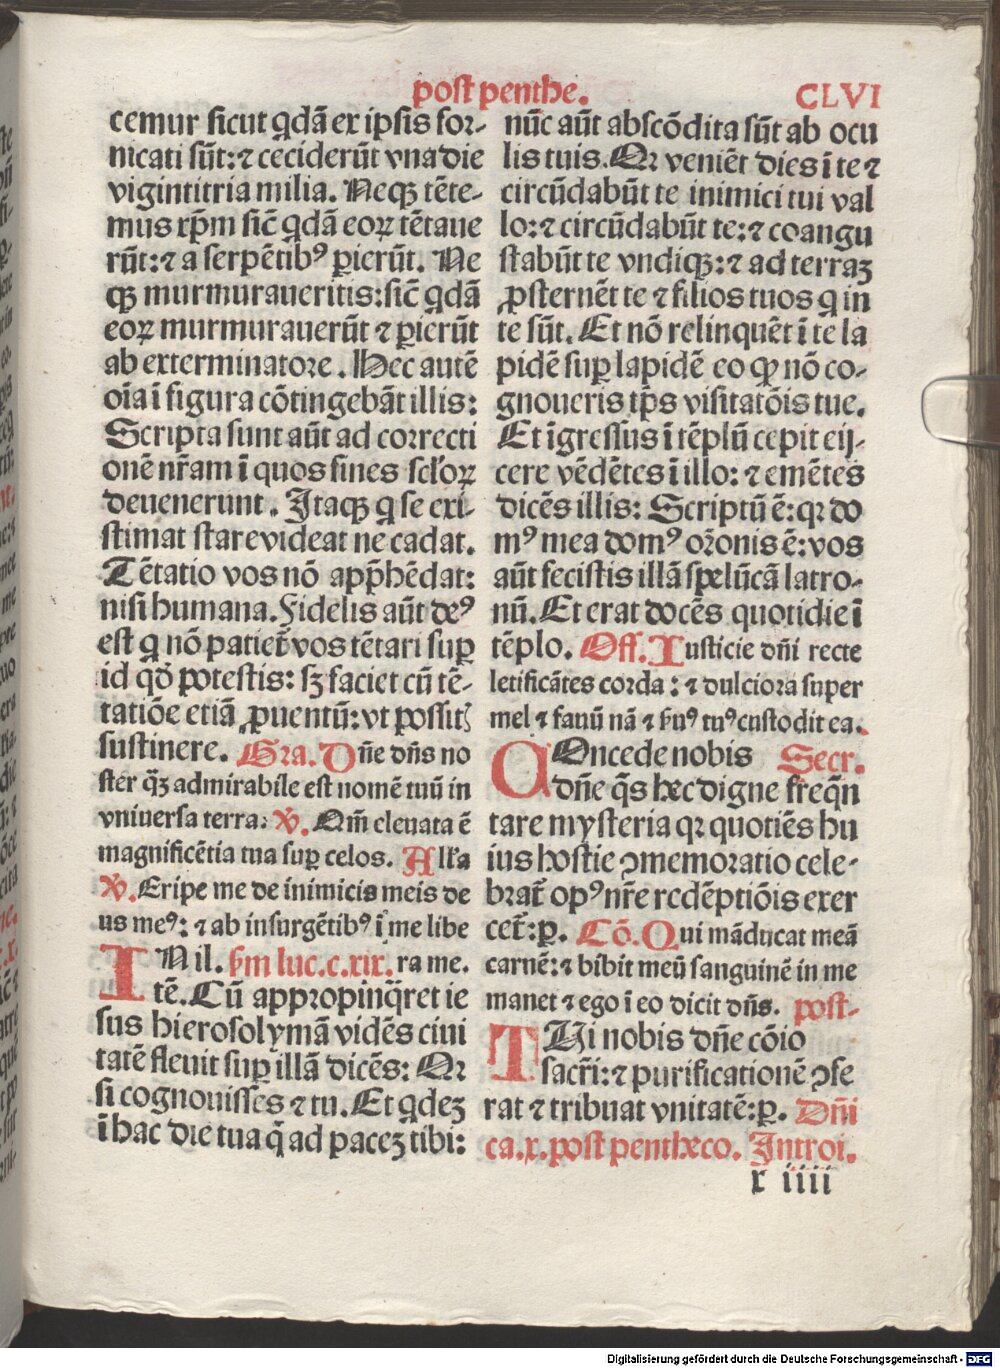 post penthe.
CLVI
cemur sicut qdā ex ipsis for-
nicati sūt: ⁊ ceciderūt vna die
vigintitria milia. Neqꝫ tēte-
mus xp̄m sic̄ qdā eoꝝ tētaue
rūt: ⁊ a serpētibꝰ ꝑierūt. Ne
qꝫ murmuraueritis: sic̄ qdā
eoꝝ murmurauerūt ⁊ ꝑierūt
ab exterminatore. Hec autē
oīa ī figura cōtingebāt illis:
Scripta sunt aūt ad correcti
onē nr̄am ī quos fines sc̄loꝝ
deuenerunt. Itaqꝫ q se exi-
stimat stare videat ne cadat.
Tētatio vos nō app̄hēdat:
nisi humana. Fidelis aūt deꝰ
est q nō patiet̄ vos tētari suꝑ
id qd̄ potestis: sꝫ faciet cū tē-
tatiōe etiā ꝓuentū: vt possit
sustinere. Gra. Dn̄e dn̄s no
ster q̄ꝫ admirabile est nomē tuū in
vniuersa terra: ℣. Qm̄ eleuata ē
magnificētia tua suꝑ celos. All'a
℣. Eripe me de inimicis meis de
us meꝰ: ⁊ ab insurgētibꝰ ī me libe
IN il. s̄m luc. c. xix. ra me.
tē. Cū appropinq̄ret ie
sus hierosolymā vidēs ciui
tatē fleuit suꝑ illā dicēs: Qꝛ
si cognouisses ⁊ tu. Et qdeꝫ
ī hac die tua q̄ ad paceꝫ tibi:
nūc aūt abscōdita sūt ab ocu
lis tuis. Qꝛ veniēt dies ī te ⁊
circūdabūt te inimici tui val
lo: ⁊ circūdabūt te: ⁊ coangu
stabūt te vndiqꝫ: ⁊ ad terraꝫ
ꝓsternēt te ⁊ filios tuos q in
te sūt. Et nō relinquēt ī te la
pidē suꝑ lapidē eo ꝙ nō co-
gnoueris tp̄s visitatōis tue.
Et īgressus ī tēplū cepit eij-
cere vēdētes ī illo: ⁊ emētes
dicēs illis: Scriptū ē: qꝛ do
mꝰ mea domꝰ or̄onis ē: vos
aūt fecistis illā spelūcā latro-
nū. Et erat docēs quotidie ī
tēplo. Off. Iusticie dn̄i recte
letificātes corda: ⁊ dulciora super
mel ⁊ fauū nā ⁊ s̄uꝰ tuꝰ custodit ea.
COncede nobis Secr.
dn̄e q̄s hec digne freq̄n
tare mysteria qꝛ quotiēs hu
ius hostie ꝯmemoratio cele-
brat̄ opꝰ nr̄e redēptiōis exer
cet̄: ꝑ. Cō. Qui māducat meā
carnē: ⁊ bibit meū sanguinē in me
manet ⁊ ego ī eo dicit dn̄s. post-
TUi nobis dn̄e cōio
sacr̄i: ⁊ purificationē ꝯfe
rat ⁊ tribuat vnitatē: ꝑ. Dn̄i
ca. x. post pentheco. Introi.
x iiii
Digitalisierung gefördert durch die Deutsche Forschungsgemeinschaft - DFG